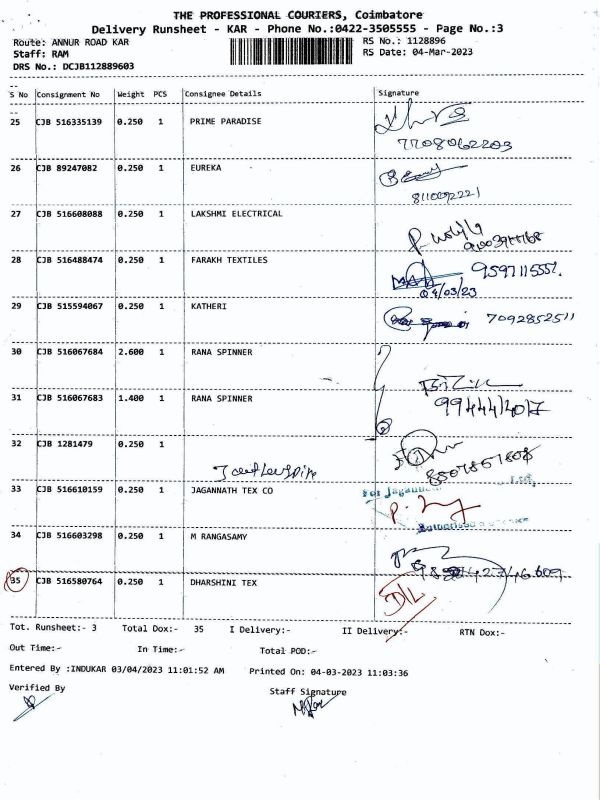 THE PROFESSIONAL COURIERS, Coimbatore
Delivery Runsheet - KAR - Phone No.:0422-3505555 - Page No.:3
Route: ANNUR ROAD KAR RS No.: 1128896
Staff: RAM RS Date: 04-Mar-2023
DRS No.: DCJB112889603
S No Consignment No Weight PCS Consignee Details Signature
25 CJB 516335139 0.250 1 PRIME PARADISE
7708062203
26 CJB 89247082 0.250 1 EUREKA
27 CJB 516608088 0.250 1 LAKSHMI ELECTRICAL
28 CJB 516488474 0.250 1 FARAKH TEXTILES
9597115551.
04/03/23
29 CJB 515594067 0.250 1 KATHERI
7092852511
30 CJB 516067684 2.600 1 RANA SPINNER
31 CJB 516067683 1.400 1 RANA SPINNER
32 CJB 1281479 0.250 1
33 CJB 516610159 0.250 1 JAGANNATH TEX CO
For Jagann
34 CJB 516603298 0.250 1 M RANGASAMY
35 CJB 516580764 0.250 1 DHARSHINI TEX
D/L
Tot. Runsheet:- 3 Total Dox:- 35 I Delivery:- II Delivery:- RTN Dox:-
Out Time:- In Time:- Total POD:-
Entered By :INDUKAR 03/04/2023 11:01:52 AM Printed On: 04-03-2023 11:03:36
Verified By Staff Signature